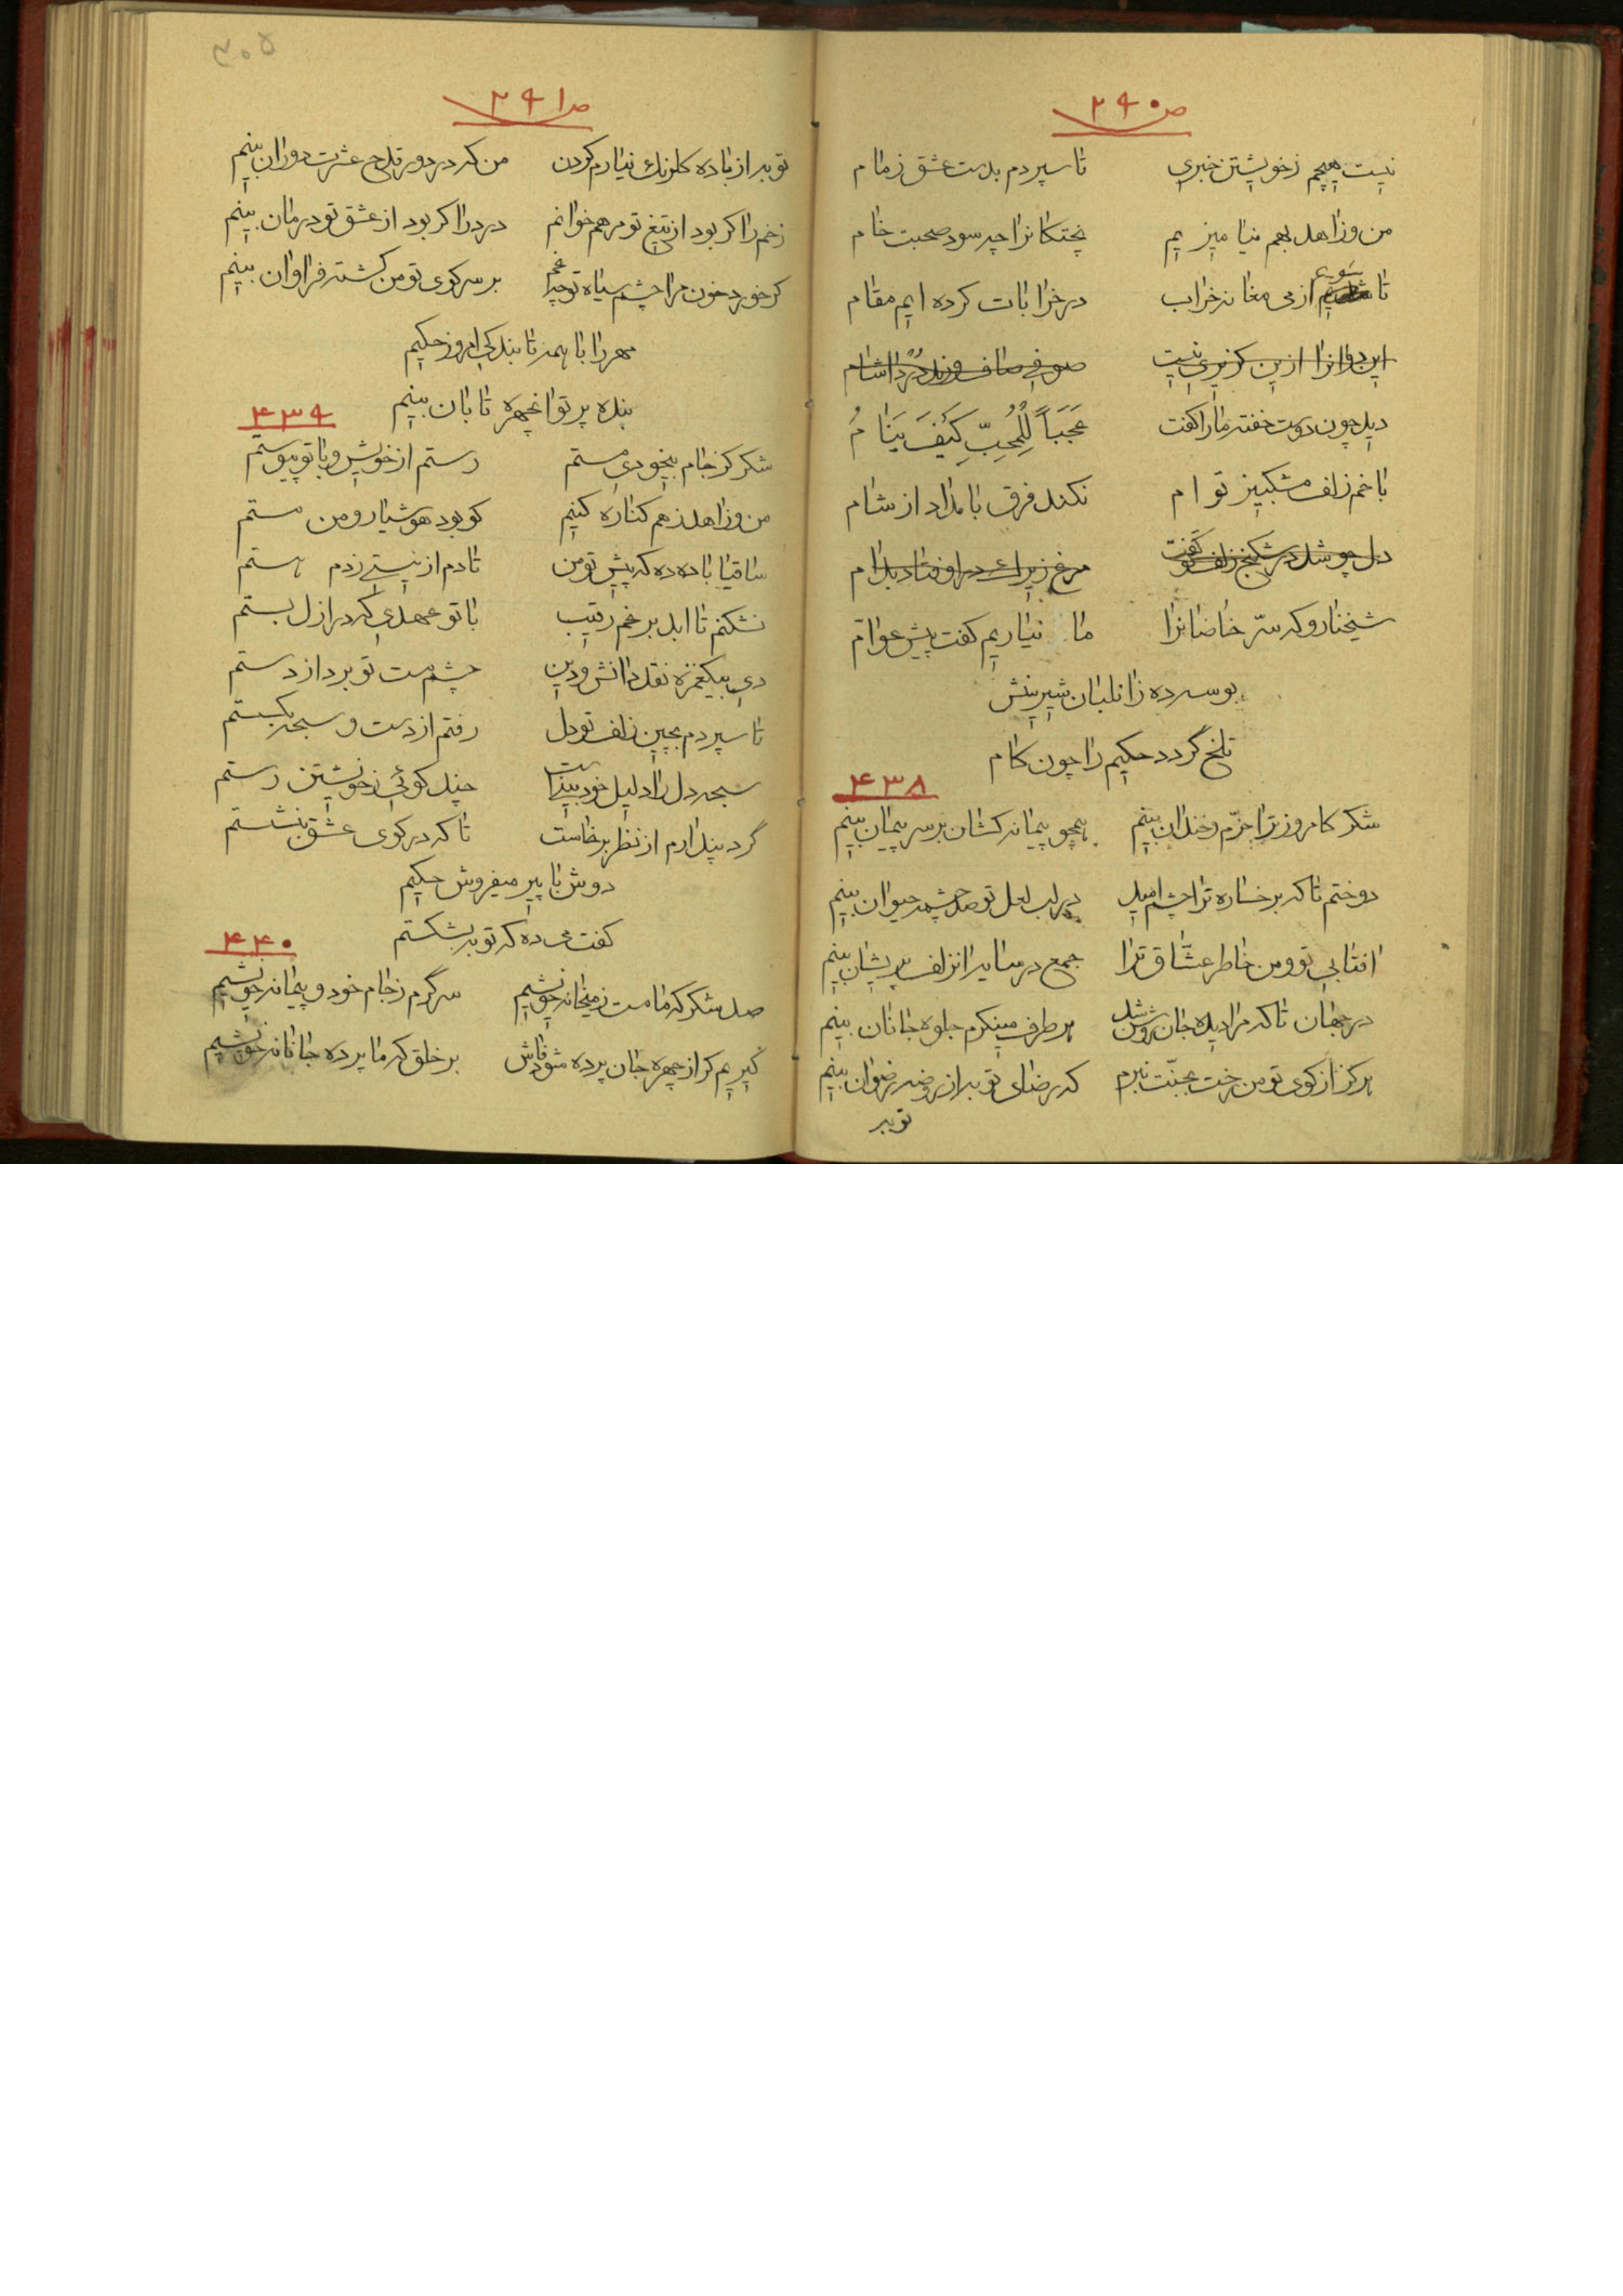 ص ۲۹۰
نیست هیچم زخویشتن خبری تا سپردم بدست عشق زمام
من و زاهد بهم نیامیزیم پختکانرا چه سود صحبت خام
تا شویم از می مغانه خراب در خرابات کرده ایم مقام
این دو انرا ازین کزیری نیست صوفی صاف و رند درد اشام
دید چون دوست خفته ما را کفت عَجَباً لِلمُحِبِّ كَيْفَ يَنَامُ
با خم زلف مشکبیز تو ام نکند فرق بامداد از شام
دل چو شد در شکنج زلفش کفت مرغ زیرک در اوفتاد بدام
شیخنا رو که سرّ خاصانرا ما نیاریم کفت پیش عوام
بوسه ده زان لبان شیرینش
تلخ گردد حکیم را چون کام
۴۳۸
شکر کامروز ترا خرّم و خندان بینم همچو پیمانه کشان بر سر پیمان بینم
دوختم تا که برخساره ترا چشم امید در لب لعل تو صد چشمه حیوان بینم
افتابی تو و من خاطر عشّاق ترا جمع در سایه انزلف پریشان بینم
در جهان تا که مرا دیده جان روشن شد هر طرف مینکرم جلوه جانان بینم
هرکز از کوی تو من رخت بجنّت نبرم که رضای تو به از روضه رضوان بینم
توبه
۳۰۵
ص ۲۹۱
توبه از باده کلرنک نیارم کردن من که در دور قدح عشرت دوران بینم
زخم را کر بود از تیغ تو مرهم خوانم درد را کر بود از عشق تو درمان بینم
کر خورد خون مرا چشم سیاه تو چه غم بر سر کوی تو من کشته فراوان بینم
مهر را با همه تابندکی امروز حکیم
بنده پرتو انچهره تابان بینم
۴۳۹
شکر کز جام بیخودی مستم رستم از خویش و با تو پیوستم
من و زاهد ز هم کناره کنیم کو بود هوشیار و من مستم
ساقیا باده ده که پیش تو من تا دم از نیستی زدم هستم
نشکنم تا ابد برغم رقیب با تو عهدی که در ازل بستم
دی بیکغمزه نقد دانش و دین چشم مست تو برد از دستم
تا سپردم بچین زلف تو دل رفتم از دست و سبحه بکسستم
سبحه دل را دلیل خود بینیست چند کوئی ز خویشتن رستم
گرد پندارم از نظر برخاست تا که در کوی عشق بنشستم
دوش با پیر میفروش حکیم
کفت می ده که توبه بشکستم
۴۴۰
صد شکر که ما مست ز میخانه خویشیم سرگرم ز جام خود و پیمانه خویشیم
کیریم کر از چهره جان پرده شود فاش بر خلق که ما پرده جانانه خویشیم